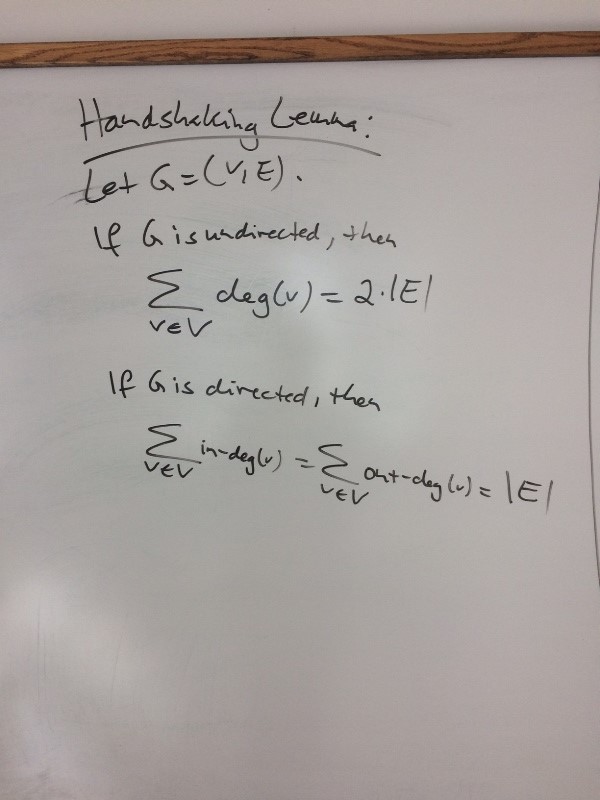 Handshaking Lemma:
Let G=(V,E).
If G is undirected, then
∑ deg(v) = 2·|E|
v∈V
If G is directed, then
∑ in-deg(v) = ∑ out-deg(v) = |E|
v∈V v∈V